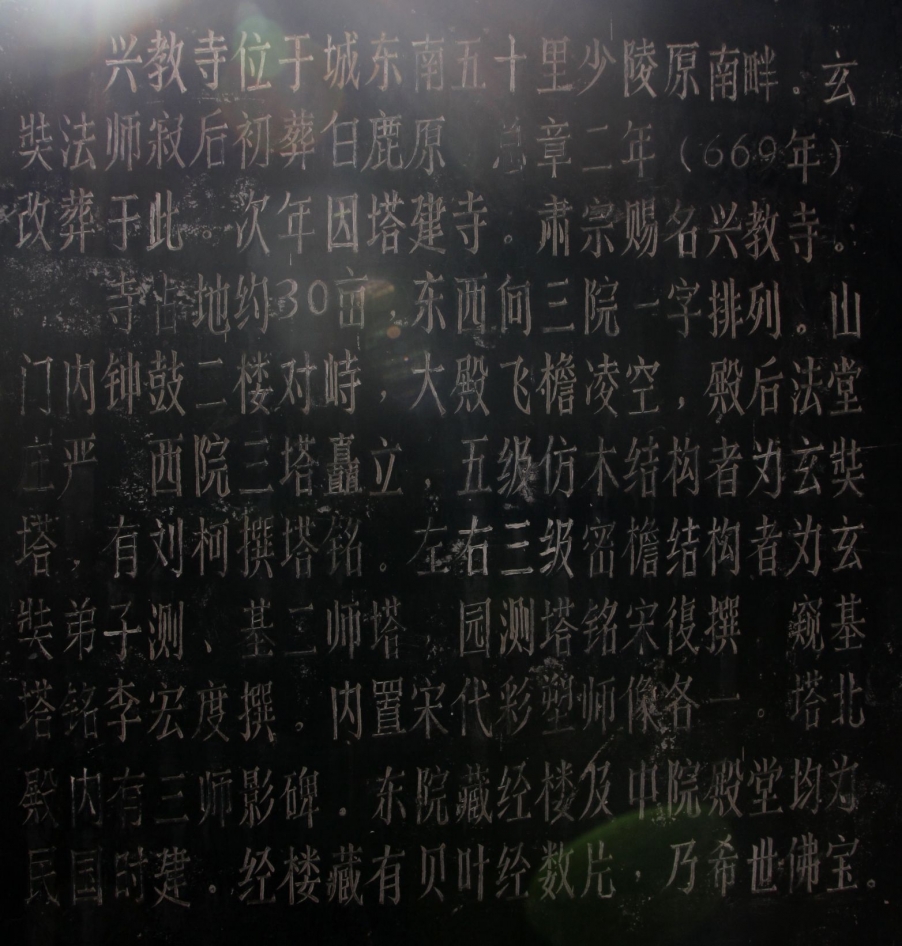 兴教寺位于城东南五十里少陵原南畔。玄
奘法师寂后初葬白鹿原 总章二年（669年）
改葬于此。次年因塔建寺。肃宗赐名兴教寺。
寺占地约30亩，东西向三院一字排列。山
门内钟鼓二楼对峙，大殿飞檐凌空，殿后法堂
庄严 西院三塔矗立，五级仿木结构者为玄奘
塔，有刘柯撰塔铭。左右三级密檐结构者为玄
奘弟子测、基二师塔，园测塔铭宋復撰 窥基
塔铭李宏度撰。内置宋代彩塑师像各一。塔北
殿内有三师影碑。东院藏经楼及中院殿堂均为
民国时建。经楼藏有贝叶经数片，乃希世佛宝。